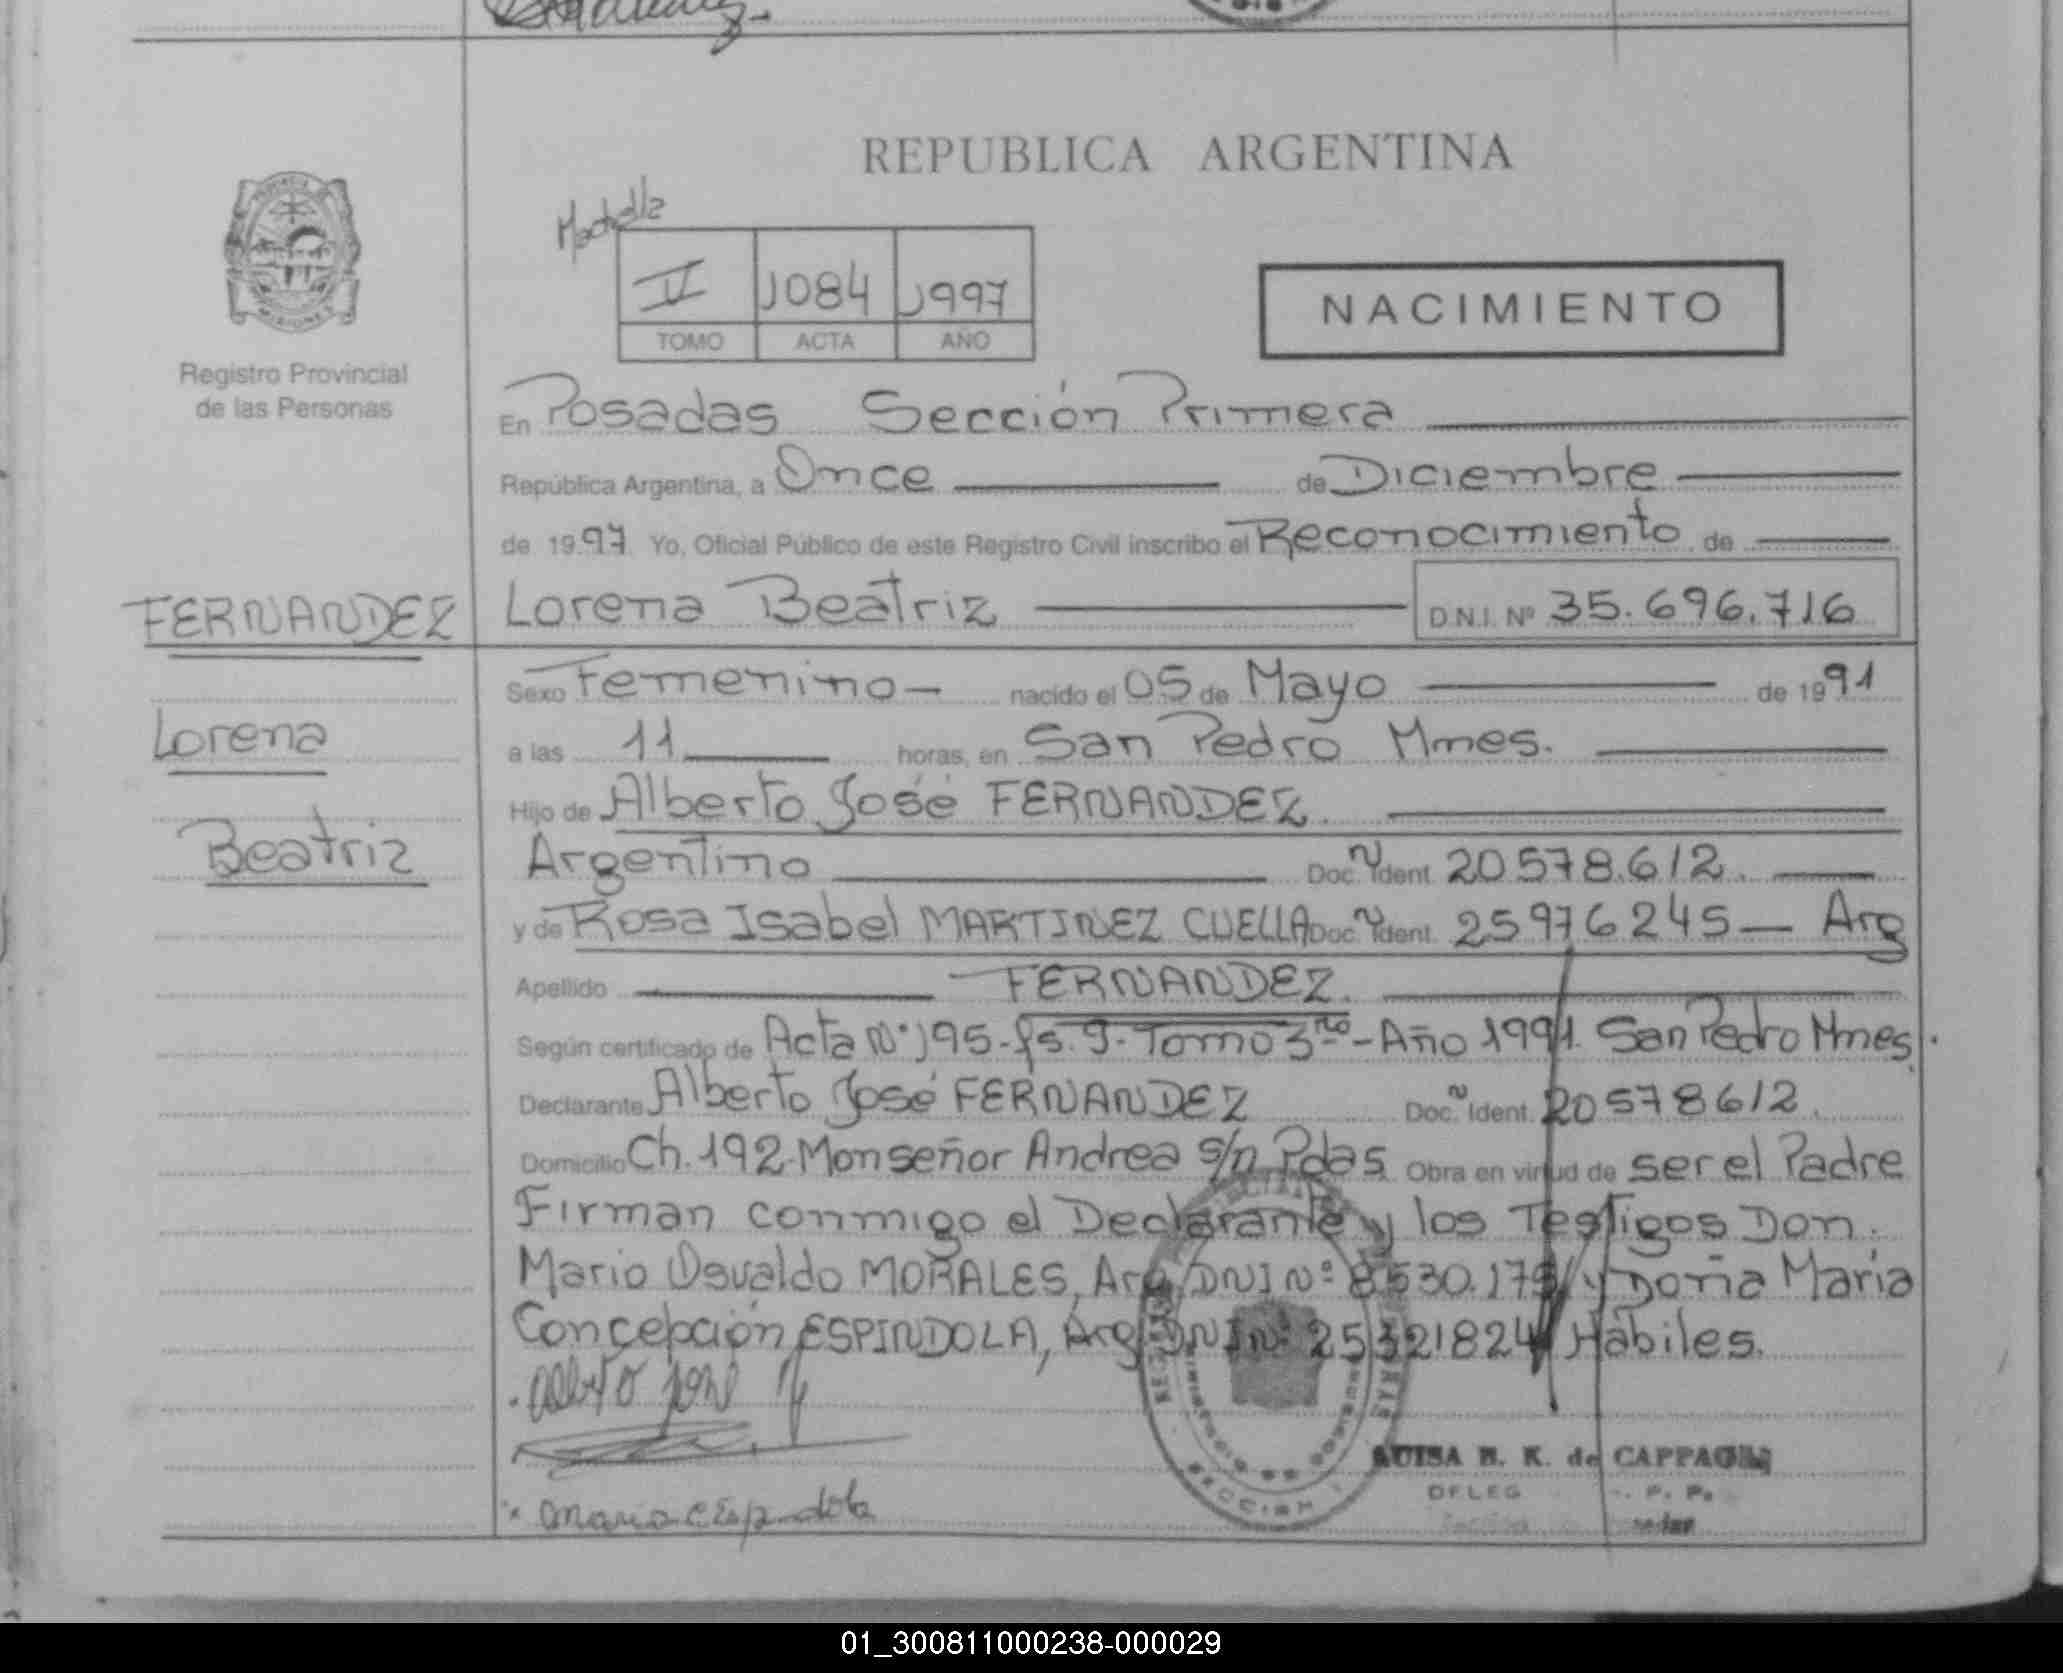 REPUBLICA ARGENTINA
II 1084 1997
TOMO ACTA AÑO
NACIMIENTO
MISIONES
Registro Provincial
de las Personas
En Posadas Sección Primera
República Argentina, a Once de Diciembre
de 1997 Yo, Oficial Público de este Registro Civil inscribo el Reconocimiento de
FERNANDEZ Lorena Beatriz D.N.I. Nº 35.696.716
Sexo Femenino nacido el 05 de Mayo de 1991
Lorena a las 11 horas, en San Pedro Mnes.
Hijo de Alberto José FERNANDEZ
Beatriz Argentino Doc. Ident. 20578.612.
y de Rosa Isabel MARTINEZ CUELLA Doc. Ident. 25976245 Arg
Apellido FERNANDEZ.
Según certificado de Acta Nº 195-fs. 9-Tomo 3ro-Año 1991. San Pedro Mnes.
Declarante Alberto José FERNANDEZ Doc. Ident. 20578612.
Domicilio Ch. 192-Monseñor Andrea s/n Pdas Obra en virtud de ser el Padre
Firman conmigo el Declarante y los Testigos Don.
Mario Osvaldo MORALES, Arg DNI Nº 8530.179 y Doña María
Concepción ESPINDOLA, Arg DNI Nº 25321824 Hábiles.
LUISA B. K. de
SECCION 1
01_300811000238-000029